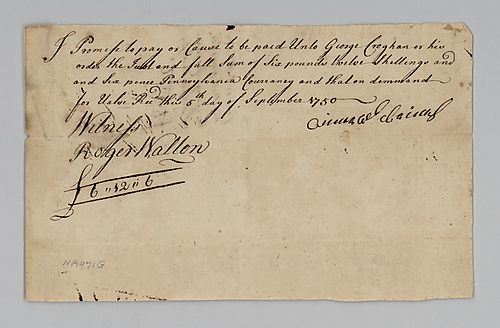 I Promise to pay or Cause to be paid Unto George Croghan or his
order the Just and full Sum of Six pounds twelve Shillings and
and Six pence Pennsylvania Courancy and that on demmand
for Value Recd this 5th day of September 1750
Witness
Roger Walton
£6"12"6
NA971G